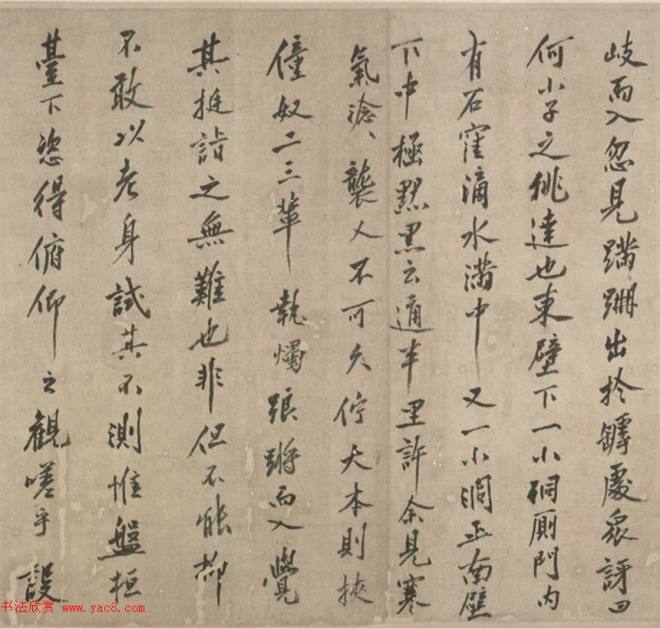 岐而入忽見蹣跚出於罅處衆訝曰
何小子之佻達也東壁下一小硐厠門内
有石窪滴水滿中又一小洞正南壁
下中極黑云通半里許余見寒
氣滄〻襲人不可久佇天本則挾
僮奴二三輩執燭踉蹡而入覺
其挺詣之無難也非但不能都
不敢以老身試其不測惟盤桓
臺下恣得俯仰之觀嗟乎設
书法欣赏 www.yac8.com